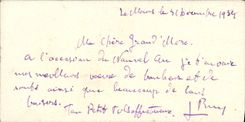 Le Mans le 31 décembre 1934
Ma chère Grand'Mère
A l'occasion du Nouvel An je t'envoie
mes meilleurs vœux de bonheur et de
santé ainsi que beaucoup de bons
baisers.
Ton Petit affectueux